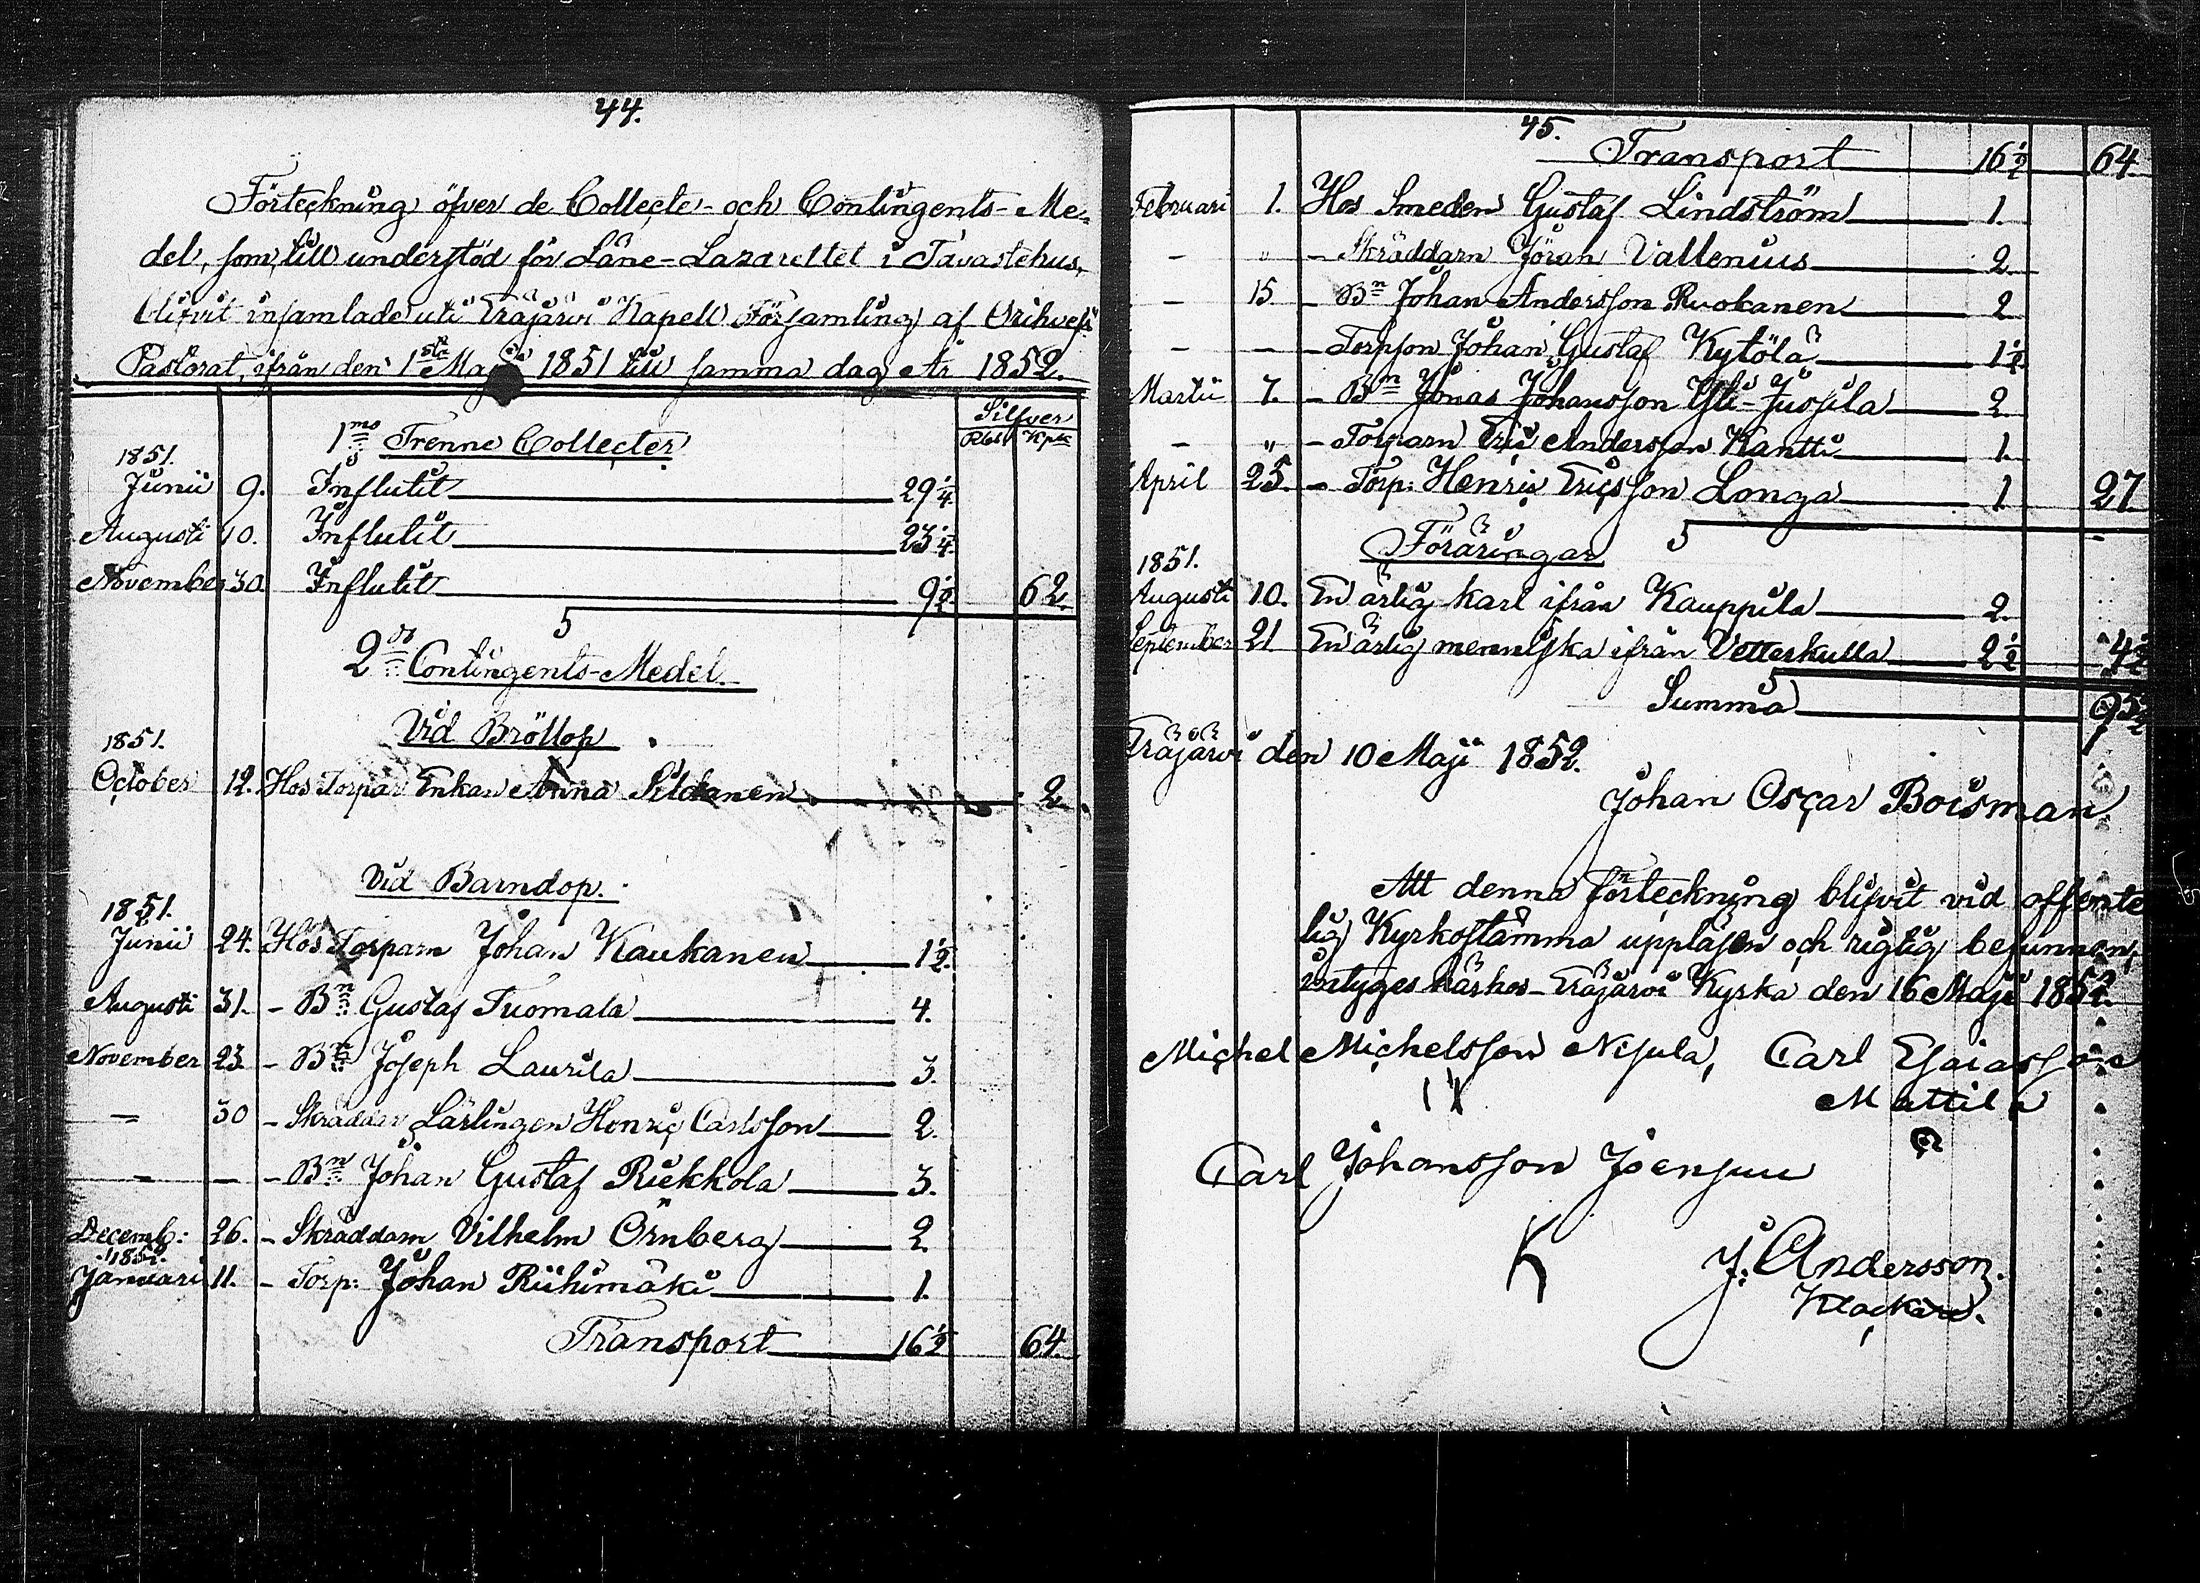 44.
Förteckning öfver de Collecte- och Contingents-Me-
del, som, till understöd för Läne-Lazarettet i Tavastehus,
blifvit insamlade uti Eräjärvi Kapell Församling af Orihvesi
Pastorat, ifrån den 1sta Maji 1851 till samma dag År 1852.
Silfver
Rbl Kpk
1mo Trenne Collecter
1851.
Junii 9. Influtit 29 1/4
Augusti 10. Influtit 23 1/4
November 30. Influtit 9 1/2 62.
2do Contingents-Medel.
Vid Bröllop
1851.
October 12. Hos Torpar Enkan Anna Sildanen 2.
Vid Barndop.
1851.
Junii 24. Hos Torparn Johan Kaukanen 1 1/2.
Augusti 31. - Bn Gustaf Tuomala 4.
November 23. - Bn Joseph Laurila 3.
— 30 - Skräddar Lärlingen Henric Carlsson 2.
— — - Bn Johan Gustaf Riekkola 3.
Decemb: 26. - Skräddarn Vilhelm Örnberg 2.
1852.
Januari 11. - Torp: Johan Riihimäki 1.
Transport 16 1/2 64.
45.
Transport 16 1/2 64.
Februari 1. Hos Smeden Gustaf Lindström 1.
- " - Skräddarn Jöran Vallenius 2
- 15 - Bn Johan Andersson Ruokanen 2
- — - Torpson Johan Gustaf Kytölä 1 1/2
Martii 7. - Bn Jonas Johansson Yli-Jussila 2
- " - Torparn Eric Andersson Kantti 1.
April 25. - Torp: Henric Ericsson Longa 1. 27.
Föräringar
1851.
Augusti 10. En ärlig karl ifrån Kauppila 2.
September 21 En ärlig menniska ifrån Vetterkulla 2 1/2 4 1/2
Summa 93 1/2
Eräjärvi den 10 Maji 1852.
Johan Oscar Boisman
Att denna förteckning blifvit vid offente
lig Kyrkostämma uppläsen och rigtig befunnen,
intyges härhos Eräjärvi Kyrka den 16 Maji 1852.
Michel Michelsson Nisula, Carl Esaiasson
Mattila
Carl Johansson Joensuu
K
J. Andersson.
Klockare.